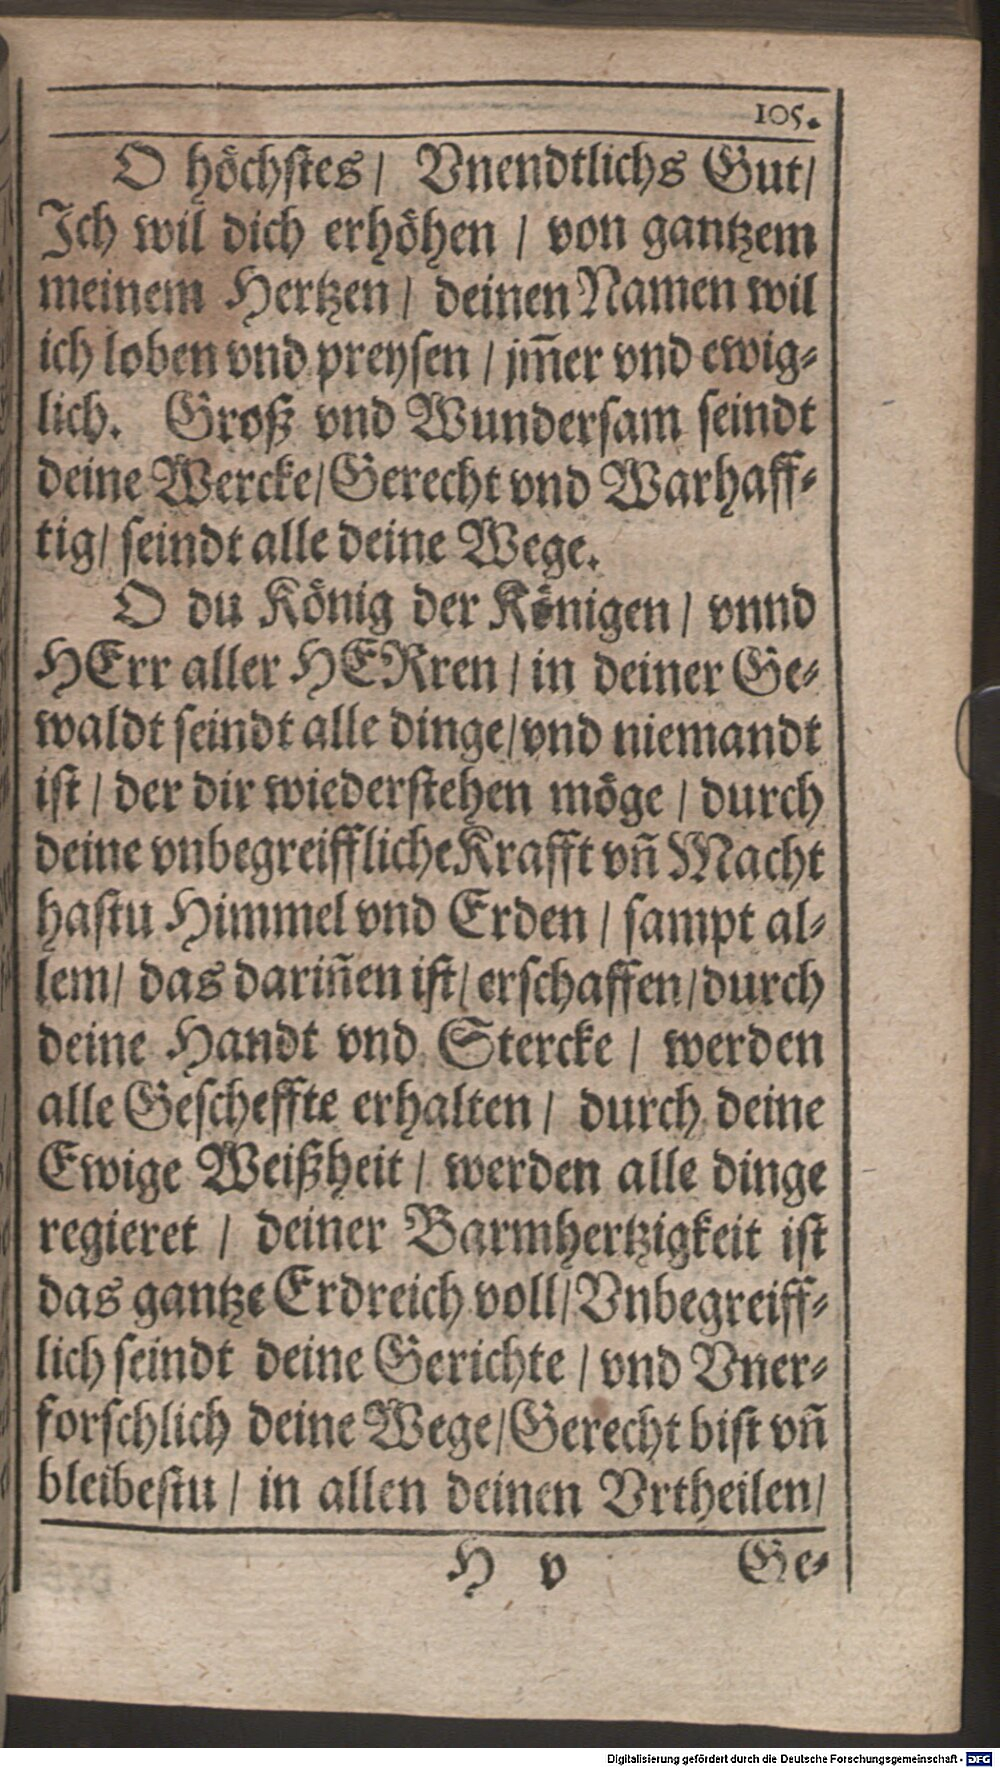 105.
O höchstes/ Vnendtlichs Gut/
Ich wil dich erhöhen / von gantzem
meinem Hertzen / deinen Namen wil
ich loben vnd preysen / jm̄er vnd ewig⸗
lich. Groß vnd Wundersam seindt
deine Wercke/Gerecht vnd Warhaff⸗
tig/ seindt alle deine Wege.
O du König der Königen / vnnd
HErr aller HERren / in deiner Ge⸗
waldt seindt alle dinge/vnd niemandt
ist / der dir wiederstehen möge / durch
deine vnbegreiffliche Krafft vn̄ Macht
hastu Himmel vnd Erden / sampt al⸗
lem/ das darin̄en ist/ erschaffen/durch
deine Handt vnd Stercke / werden
alle Gescheffte erhalten / durch deine
Ewige Weißheit / werden alle dinge
regieret / deiner Barmhertzigkeit ist
das gantze Erdreich voll/Vnbegreiff⸗
lich seindt deine Gerichte / vnd Vner⸗
forschlich deine Wege/Gerecht bist vn̄
bleibestu / in allen deinen Vrtheilen/
H v Ge⸗
Digitalisierung gefördert durch die Deutsche Forschungsgemeinschaft - DFG